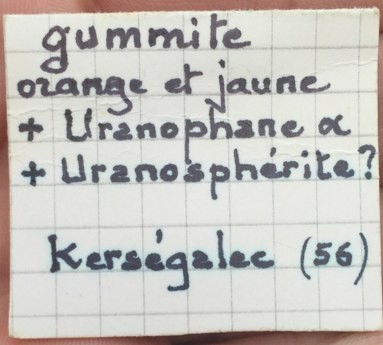 gummite
orange et jaune
+ Uranophane α
+ Uranosphérite?
Kerségalec (56)